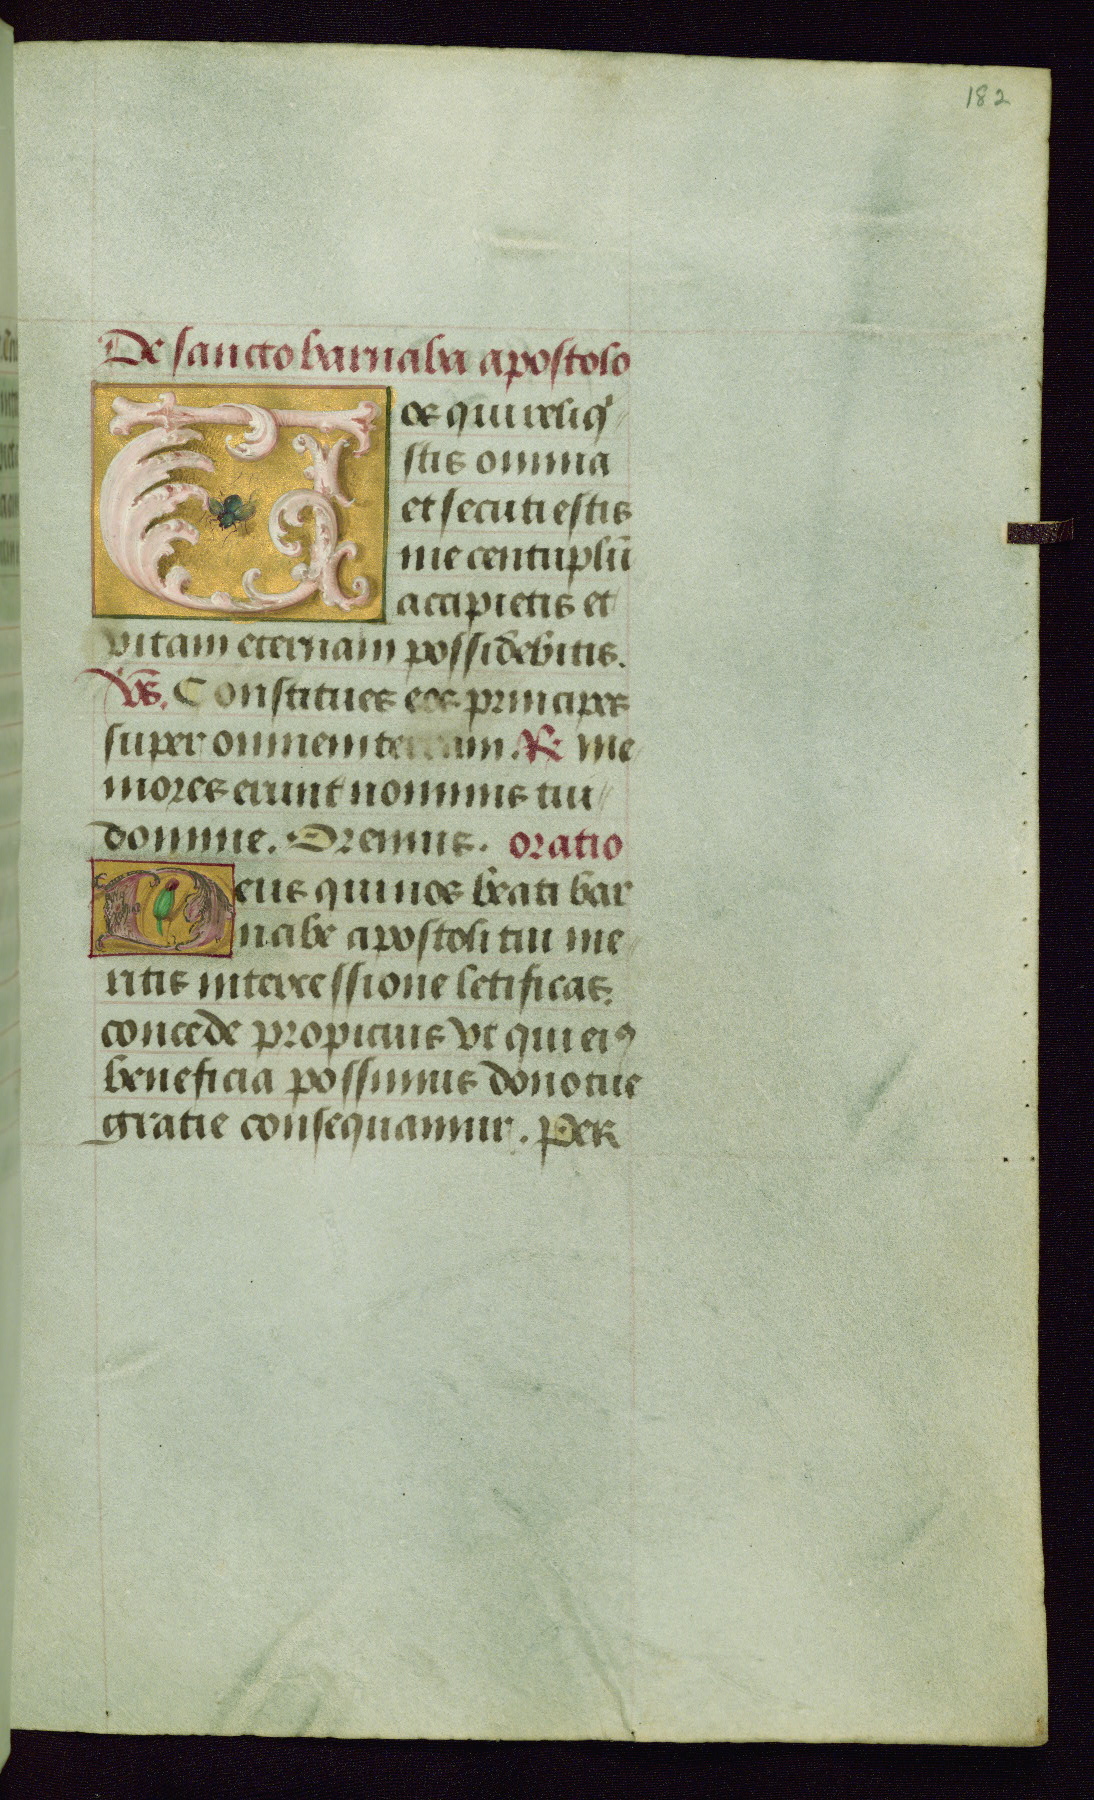 182
De sancto barnaba apostolo
Vos qui reliq̄
stis omnia
et secuti estis
me centuplū
accipietis et
vitam eternam possidebitis.
V̄s. Constitues eos principes
super omnem terram. R̄ me
mores erunt nominis tui
domine. Oremus. oratio
Deus qui nos beati bar
nabe apostoli tui me
ritis intercessione letificas.
concede propicius vt qui eiꝯ
beneficia possimus dono tue
gratie consequamur. Per